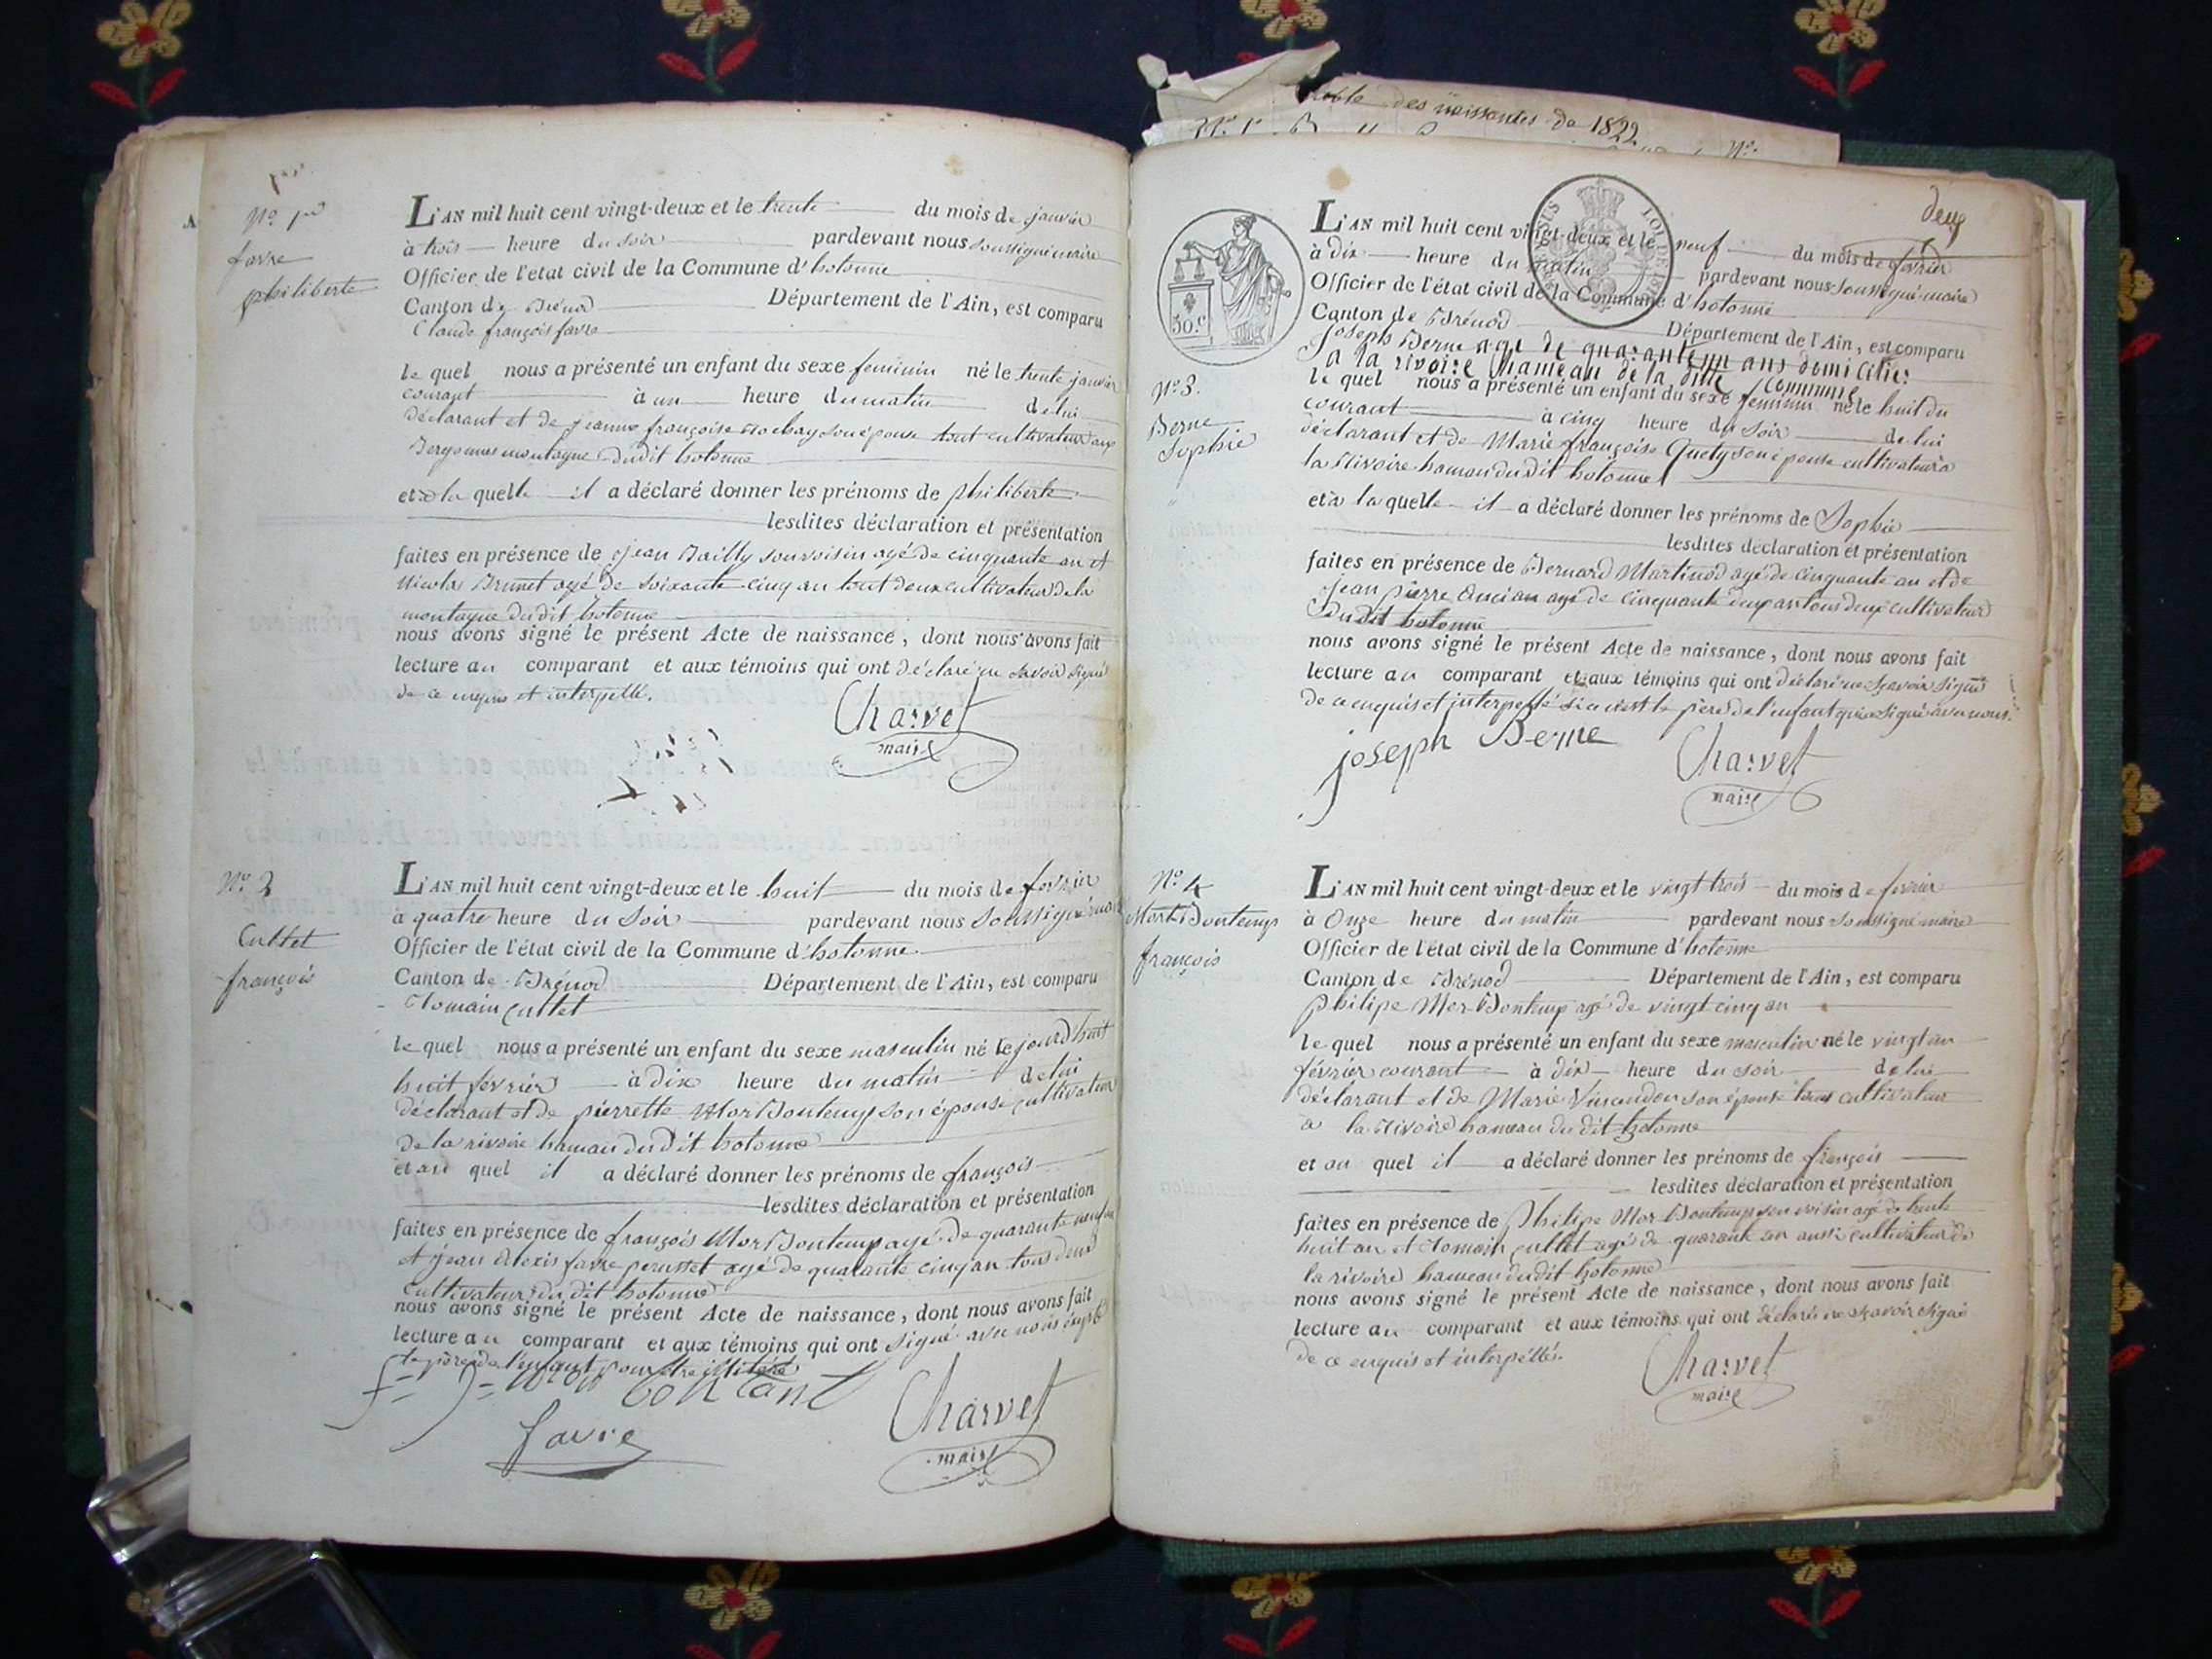 table des naissances de 1822
No 1er
favre
philiberte
L'AN mil huit cent vingt-deux et le trente du mois de janvier
à trois heure du soir pardevant nous soussigné maire
Officier de l'etat civil de la Commune d'hotonne
Canton de Brénod Département de l'Ain, est comparu
Claude françois favre
le quel nous a présenté un enfant du sexe feminin né le trente janvier
courant à un heure du matin de lui
déclarant et de jeanne françoise son épouse tout cultivateur aux
montagne dudit hotonne
et a la quelle il a déclaré donner les prénoms de philiberte
lesdites déclaration et présentation
faites en présence de jean Bailly son voisin agé de cinquante an et
Nicolas Brunet agé de soixante cinq an tout deux cultivateur de la
montagne dudit hotonne
nous avons signé le présent Acte de naissance, dont nous avons fait
lecture au comparant et aux témoins qui ont déclaré ne savoir signé
de ce enquis et interpellé.
Charvet
maire
No 2
Cultet
françois
L'AN mil huit cent vingt-deux et le huit du mois de fevrier
à quatre heure du soir pardevant nous soussigné maire
Officier de l'état civil de la Commune d'hotonne
Canton de Brénod Département de l'Ain, est comparu
Romain cultet
le quel nous a présenté un enfant du sexe masculin né le jourd'huit
huit fevrier à dix heure du matin de lui
déclarant et de pierrette Mort Bontemp son épouse cultivateur
de la rivoire hamau dudit hotonne
et au quel il a déclaré donner les prénoms de françois
lesdites déclaration et présentation
faites en présence de françois Mort Bontemp agé de quarante neuf an
et jean alexis favre perusset agé de quarante cinq an tous deux
cultivateur du dit hotonne
nous avons signé le présent Acte de naissance, dont nous avons fait
lecture au comparant et aux témoins qui ont signé avec nous excepté
le père de l'enfant pour être illiteré
favre
Charvet
maire
deux
30.c
L'AN mil huit cent vingt-deux et le neuf du mois de fevrier
à dix heure du matin pardevant nous soussigné maire
Officier de l'état civil de la Commune d'hotonne
Canton de Brénod Département de l'Ain, est comparu
joseph Berne age de quarantenn ans domicilier
a la rivoire hameau de la ditte commune
No 3.
Berne
Sophie
le quel nous a présenté un enfant du sexe feminin né le huit du
courant à cinq heure du soir de lui
déclarant et de Marie françoise Quety son épouse cultivateur a
la Rivoire hamau dudit hotonne
et à la quelle il a déclaré donner les prénoms de Sophie
lesdites déclaration et présentation
faites en présence de Bernard Martinod agé de cinquante an et de
jean pierre Ancian agé de cinquante deux an tous deux cultivateur
dudit hotonne
nous avons signé le présent Acte de naissance, dont nous avons fait
lecture au comparant et aux témoins qui ont déclaré ne sçavoir signé
de ce enquis et interpellé si ce n'est le père de l'enfant qui a signé avec nous.
joseph Berne
Charvet
maire
No 4
Mort Bontemp
françois
L'AN mil huit cent vingt-deux et le vingt trois du mois de fevrier
à Onze heure du matin pardevant nous soussigné maire
Officier de l'état civil de la Commune d'hotonne
Canton de Brénod Département de l'Ain, est comparu
philipe Mor Bontemp agé de vingt cinq an
le quel nous a présenté un enfant du sexe masculin né le vingt un
février courant à dix heure du soir de lui
déclarant et de Marie Vuiaudon son épouse tous cultivateur
a la Rivoire hameau du dit hotonne
et au quel il a déclaré donner les prénoms de françois
lesdites déclaration et présentation
faites en présence de philipe Mor Bontemp son voisin agé de trente
huit an et Romain cultet agé de quarante an aussi cultivateur de
la rivoire hameau dudit hotonne
nous avons signé le présent Acte de naissance, dont nous avons fait
lecture au comparant et aux témoins qui ont déclaré ne sçavoir signé
de ce enquis et interpellés.
Charvet
maire